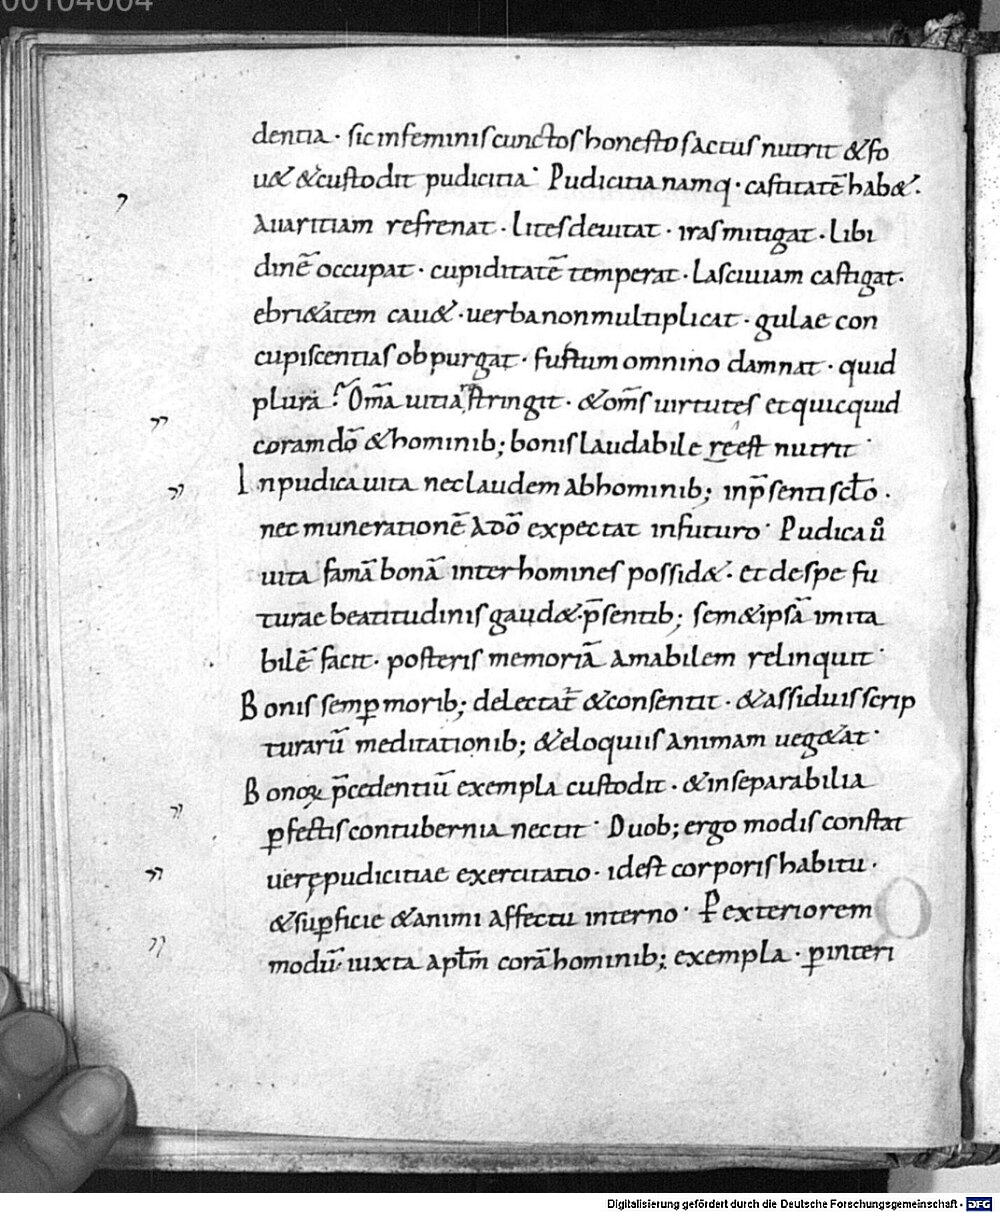 00104004
dentia · sic in feminis cunctos honestos actus nutrit & fo
u& & custodit pudicitia · Pudicitia namq · castitatē hab& ·
Auaritiam refrenat · lites deuitat · iras mitigat · Libi
dinē occupat · cupiditatē temperat · Lasciuiam castigat ·
ebri&atem cau& · uerba non multiplicat · gulae con
cupiscentias obpurgat · furtum omnino damnat · quid
plura ? Om̄a uitia stringit · & om̄s uirtutes et quicquid
coram dō & hominib; bonis laudabile est nutrit ·
Inpudica uita nec laudem ab hominib; in p̄senti sc̄lo ·
nec munerationē a dō expectat in futuro · Pudica ů
uita famā bonā inter homines possid& · et de spe fu
turae beatitudinis gaud& · p̄sentib; sem&ipsā imita
bilē facit · posteris memoriā amabilem relinquit ·
Bonis semꝑ morib; delectat̄ & consentit · & assiduis scrip
turarū meditationib; & eloquiis animam ueg&at ·
Bonoꝝ p̄cedentiū exempla custodit · & inseparabilia
ꝑfectis contubernia nectit · Duob; ergo modis constat
uere pudicitiae exercitatio · id est corporis habitu ·
& suꝑficie & animi affectu interno · Ꝑ exteriorem
modū iuxta apłm corā hominib; exempla · ꝑ interi
Digitalisierung gefördert durch die Deutsche Forschungsgemeinschaft - DFG